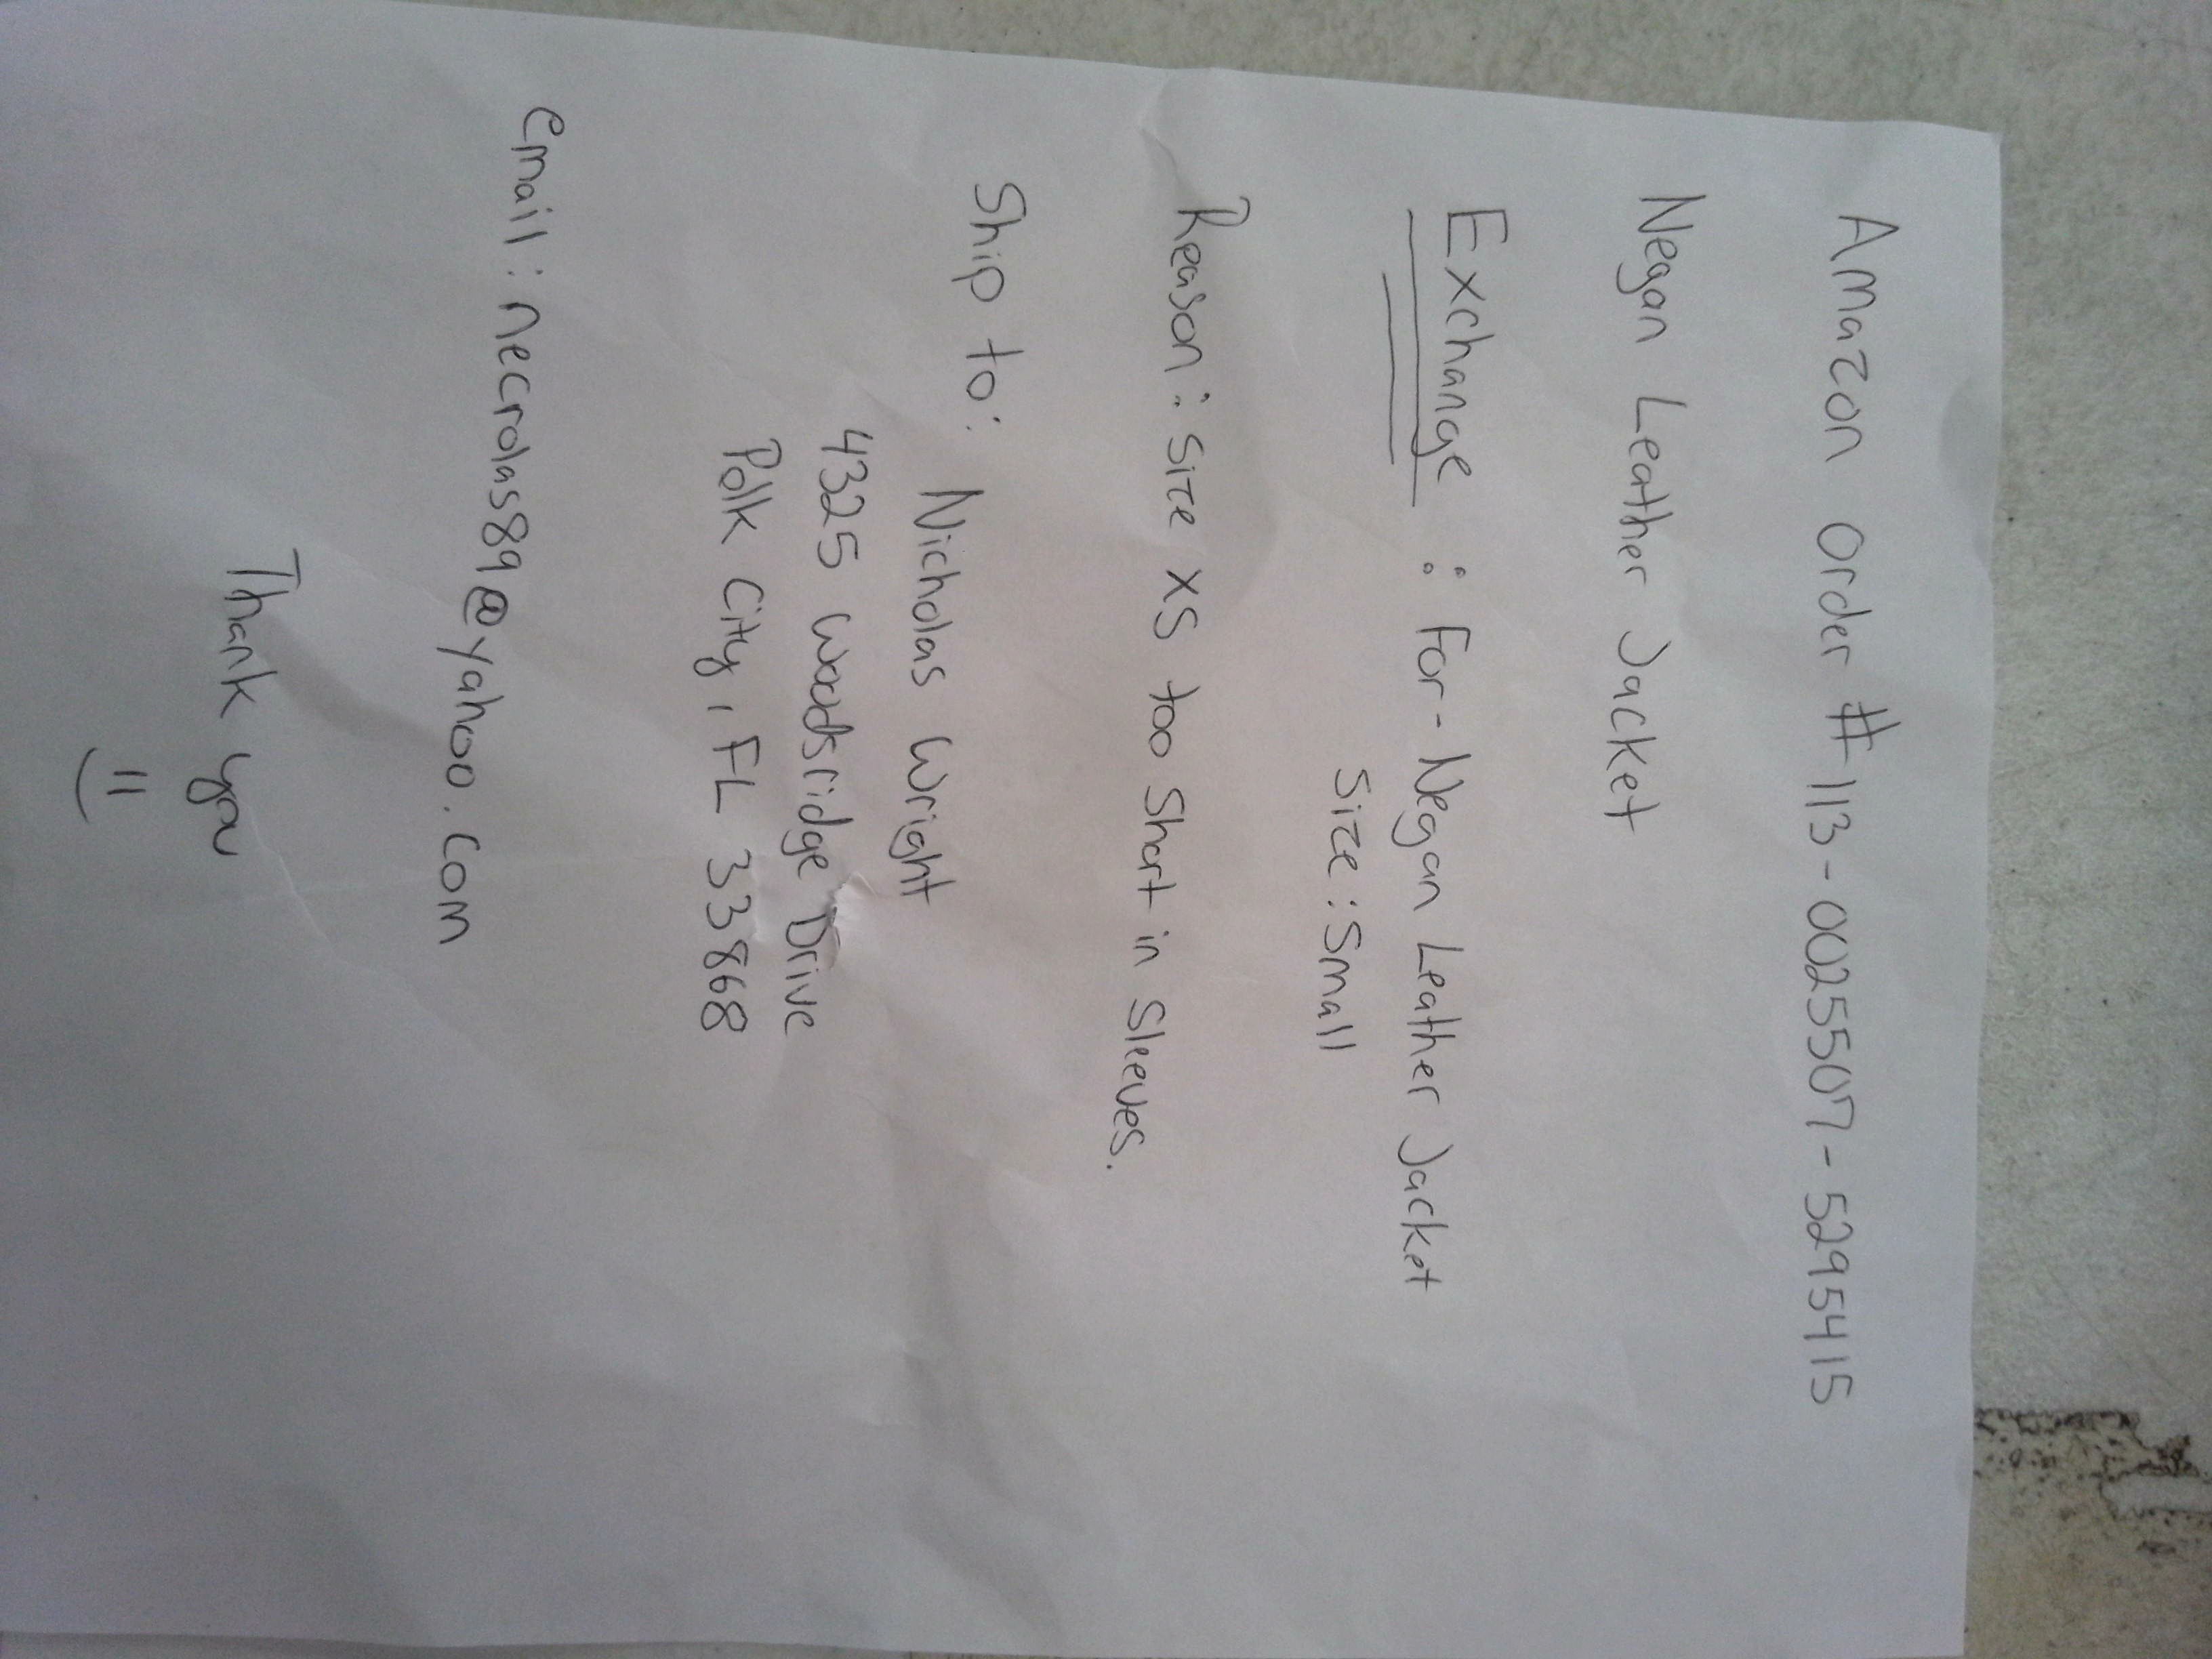 Amazon Order # 113-0025507-5295415
Negan Leather Jacket
Exchange : For - Negan Leather Jacket
Size : Small
Reason : Size XS too Short in Sleeves.
Ship to: Nicholas Wright
4325 Woodsridge Drive
Polk City, FL 33868
email: necrolas89@yahoo.com
Thank you
=)